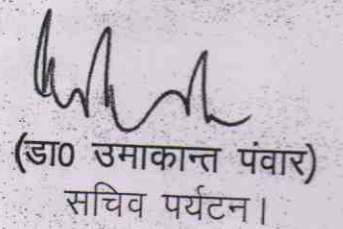 (डा0 उमाकान्त पंवार)
सचिव पर्यटन।